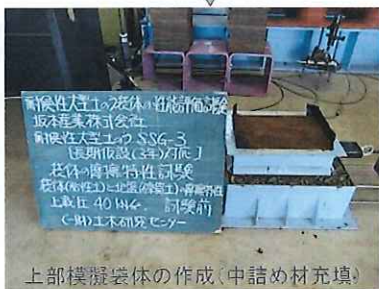 耐候性大型土のう袋体の性能評価試験
坂本産業株式会社
耐候性大型土のう SSG-3
[長期仮設(3年)対応]
袋体の摩擦特性試験
上載圧 40kN/㎡ 試験前
(一財)土木研究センター
上部模擬袋体の作成(中詰め材充填)